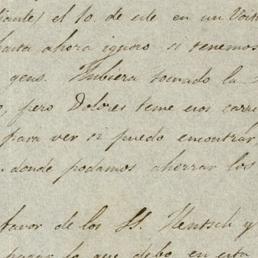 el 10. de este en un
hasta ahora ignoro si tenemos
gens. Hubiera tomado la
, pero Dolores teme esos
para ver si puedo encontrar
donde podamos ahorrar los
favor de los SS. Hentsch y
pagar lo que debo en esta